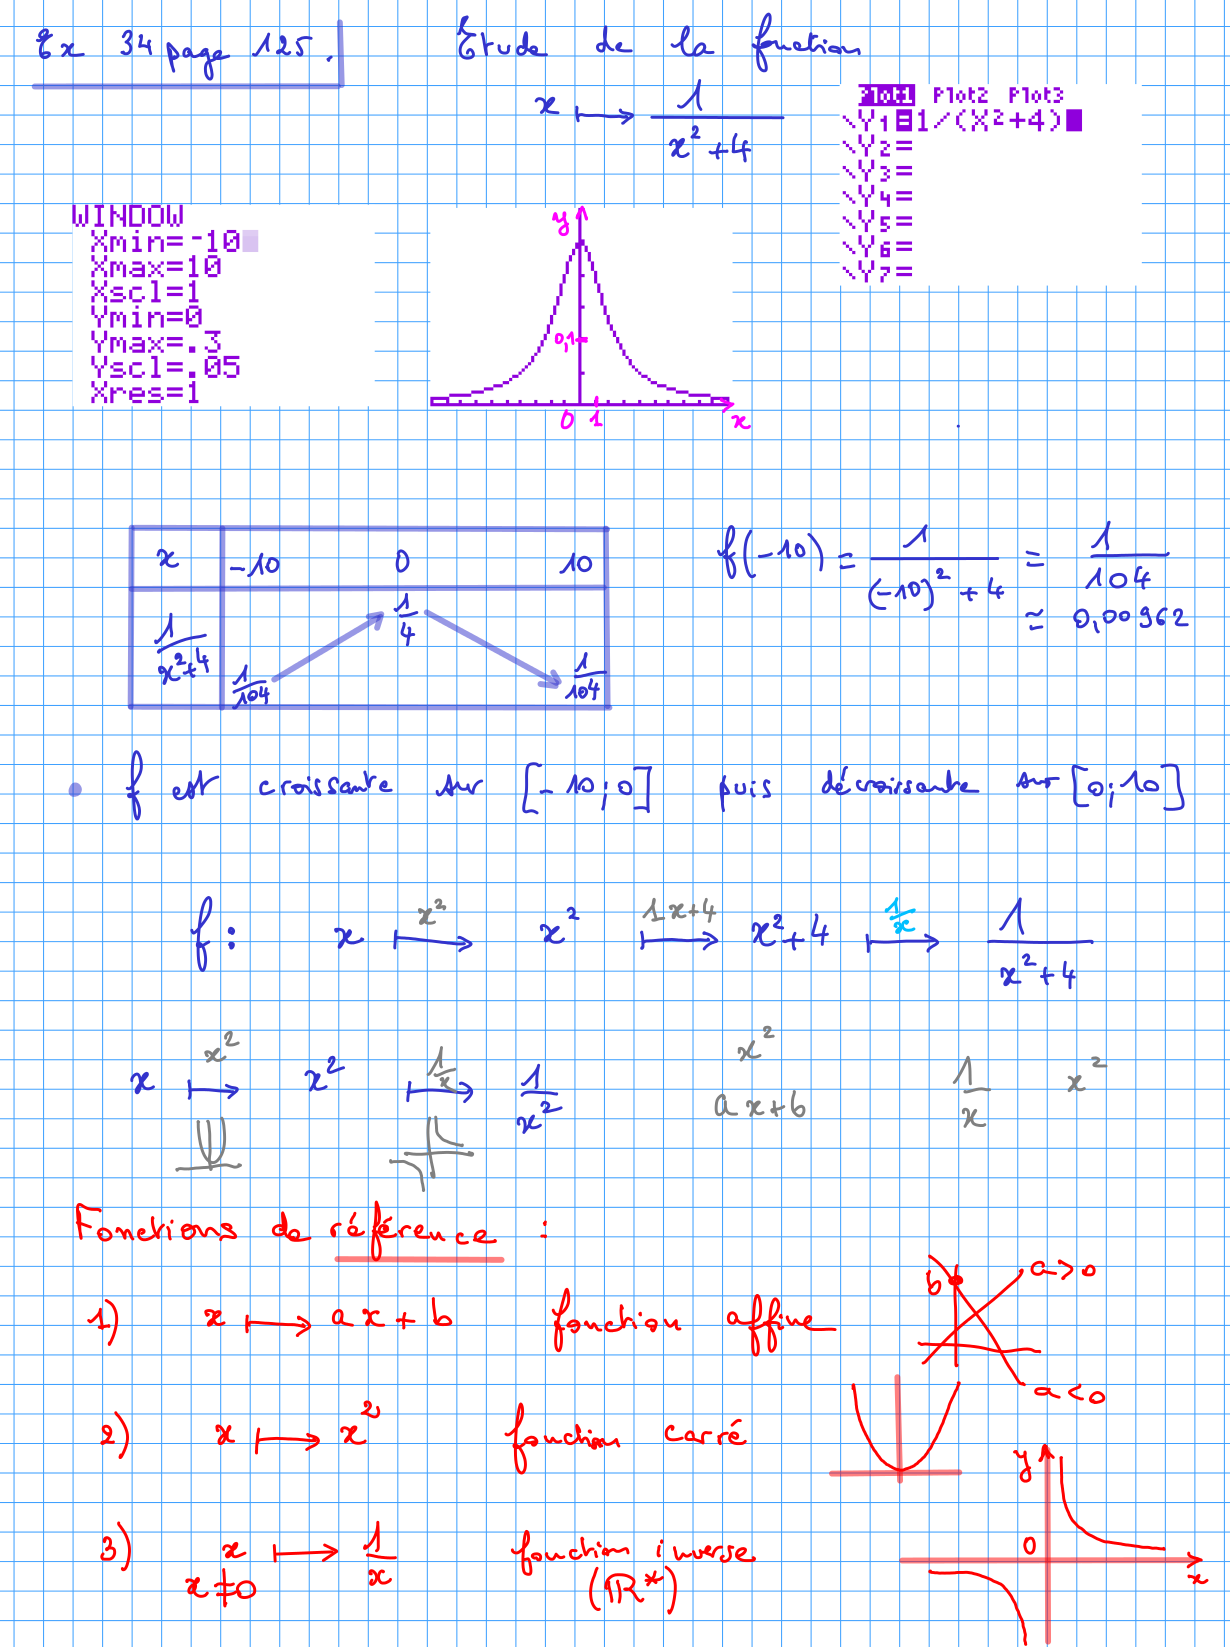 Ex 34 page 125. Etude de la fonction
x ⟼ 1/(x²+4)
Plot1 Plot2 Plot3
\Y1=1/(X²+4)
\Y2=
\Y3=
\Y4=
\Y5=
\Y6=
\Y7=
WINDOW
Xmin=-10
Xmax=10
Xscl=1
Ymin=0
Ymax=.3
Yscl=.05
Xres=1
y
0,1
0 1 x
x -10 0 10
1/(x²+4) 1/104 1/4 1/104
f(-10) = 1/((-10)²+4) = 1/104
≈ 0,00962
• f est croissante sur [-10;0] puis décroissante sur [0;10]
x² 1x+4 1/x
f: x ⟼ x² ⟼ x²+4 ⟼ 1/(x²+4)
x² 1/x
x ⟼ x² ⟼ 1/x²
x²
ax+b
1/x x²
Fonctions de référence :
1) x ⟼ ax+b fonction affine
b a>0
a<0
2) x ⟼ x² fonction carré
3) x ⟼ 1/x fonction inverse
x≠0 (ℝ*)
y
0
x